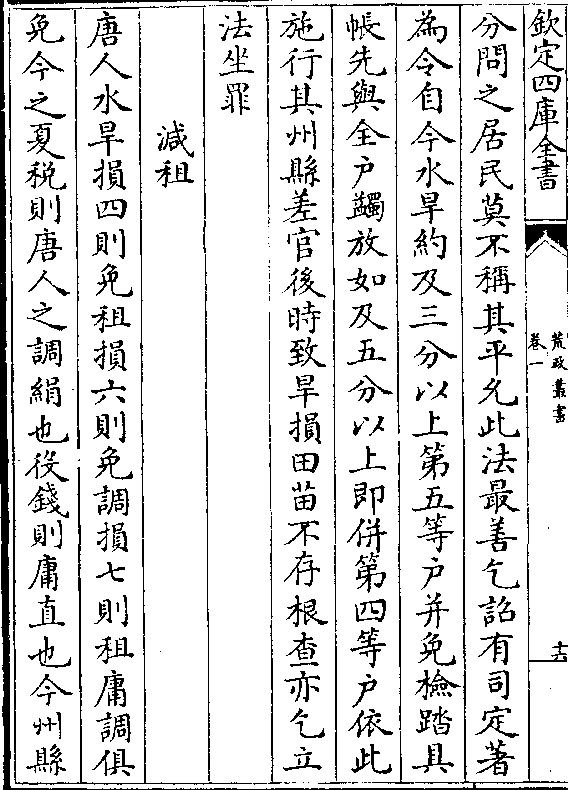 欽定四庫全書
荒政叢書
卷一
十六
分問之居民莫不稱其平允此法最善乞詔有司定著
為令自今水旱約及三分以上第五等户并免檢踏具
帳先與全户蠲放如及五分以上即併第四等户依此
施行其州縣差官後時致旱損田苗不存根查亦乞立
法坐罪
減租
唐人水旱損四則免租損六則免調損七則租庸調俱
免今之夏税則唐人之調絹也役錢則庸直也今州縣